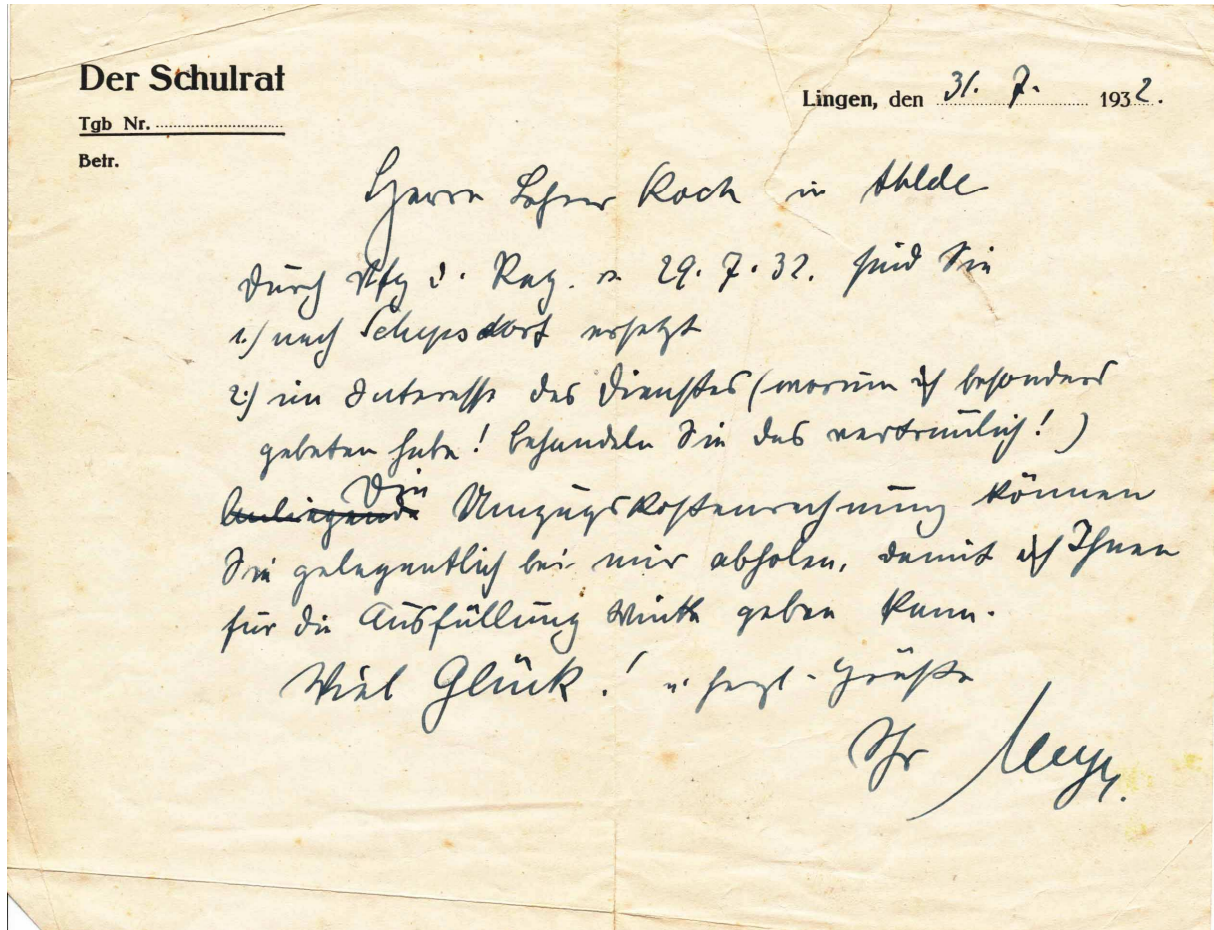 Der Schulrat
Lingen, den 31. 7. 1932.
Tgb Nr.
Betr.
Herrn Lehrer Koch in Ahlde
Durch Vfg d. Reg. v. 29. 7. 32. sind Sie
1.) nach Schepsdorf versetzt
2.) im Interesse des Dienstes (worum ich besonders
gebeten habe! Behandeln Sie das vertraulich!)
Die
Anliegende Umzugskostenrechnung können
Sie gelegentlich bei mir abholen, damit ich Ihnen
für die Ausfüllung Winke geben kann.
Viel Glück! u. herzl. Grüße
Ihr